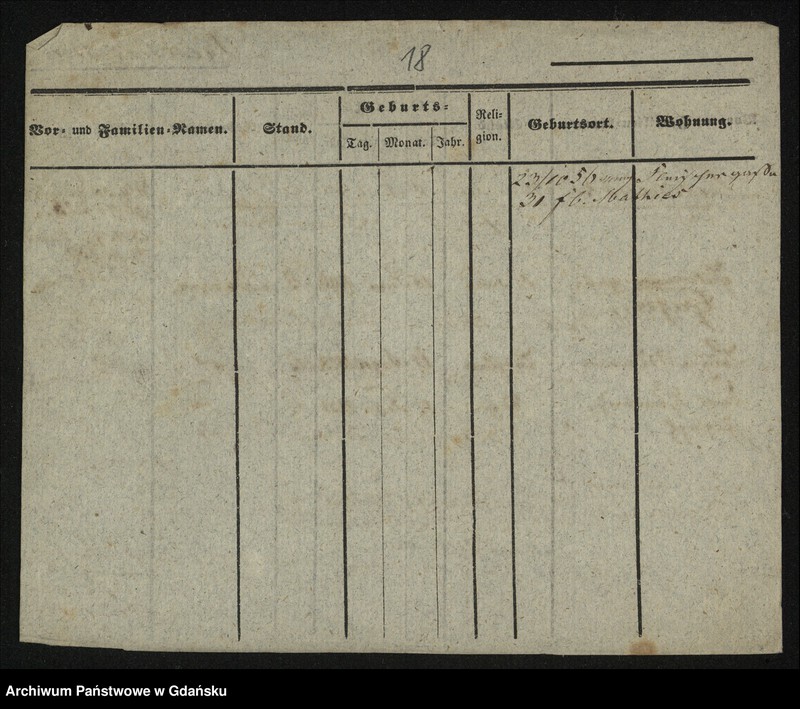 18
Vor- und Familien-Namen.
Stand.
Geburts-
Tag.
Monat.
Jahr.
Reli-
gion.
Geburtsort.
Wohnung.
23/10 50 Fleischergasse
31 f b. Mathies
Archiwum Państwowe w Gdańsku